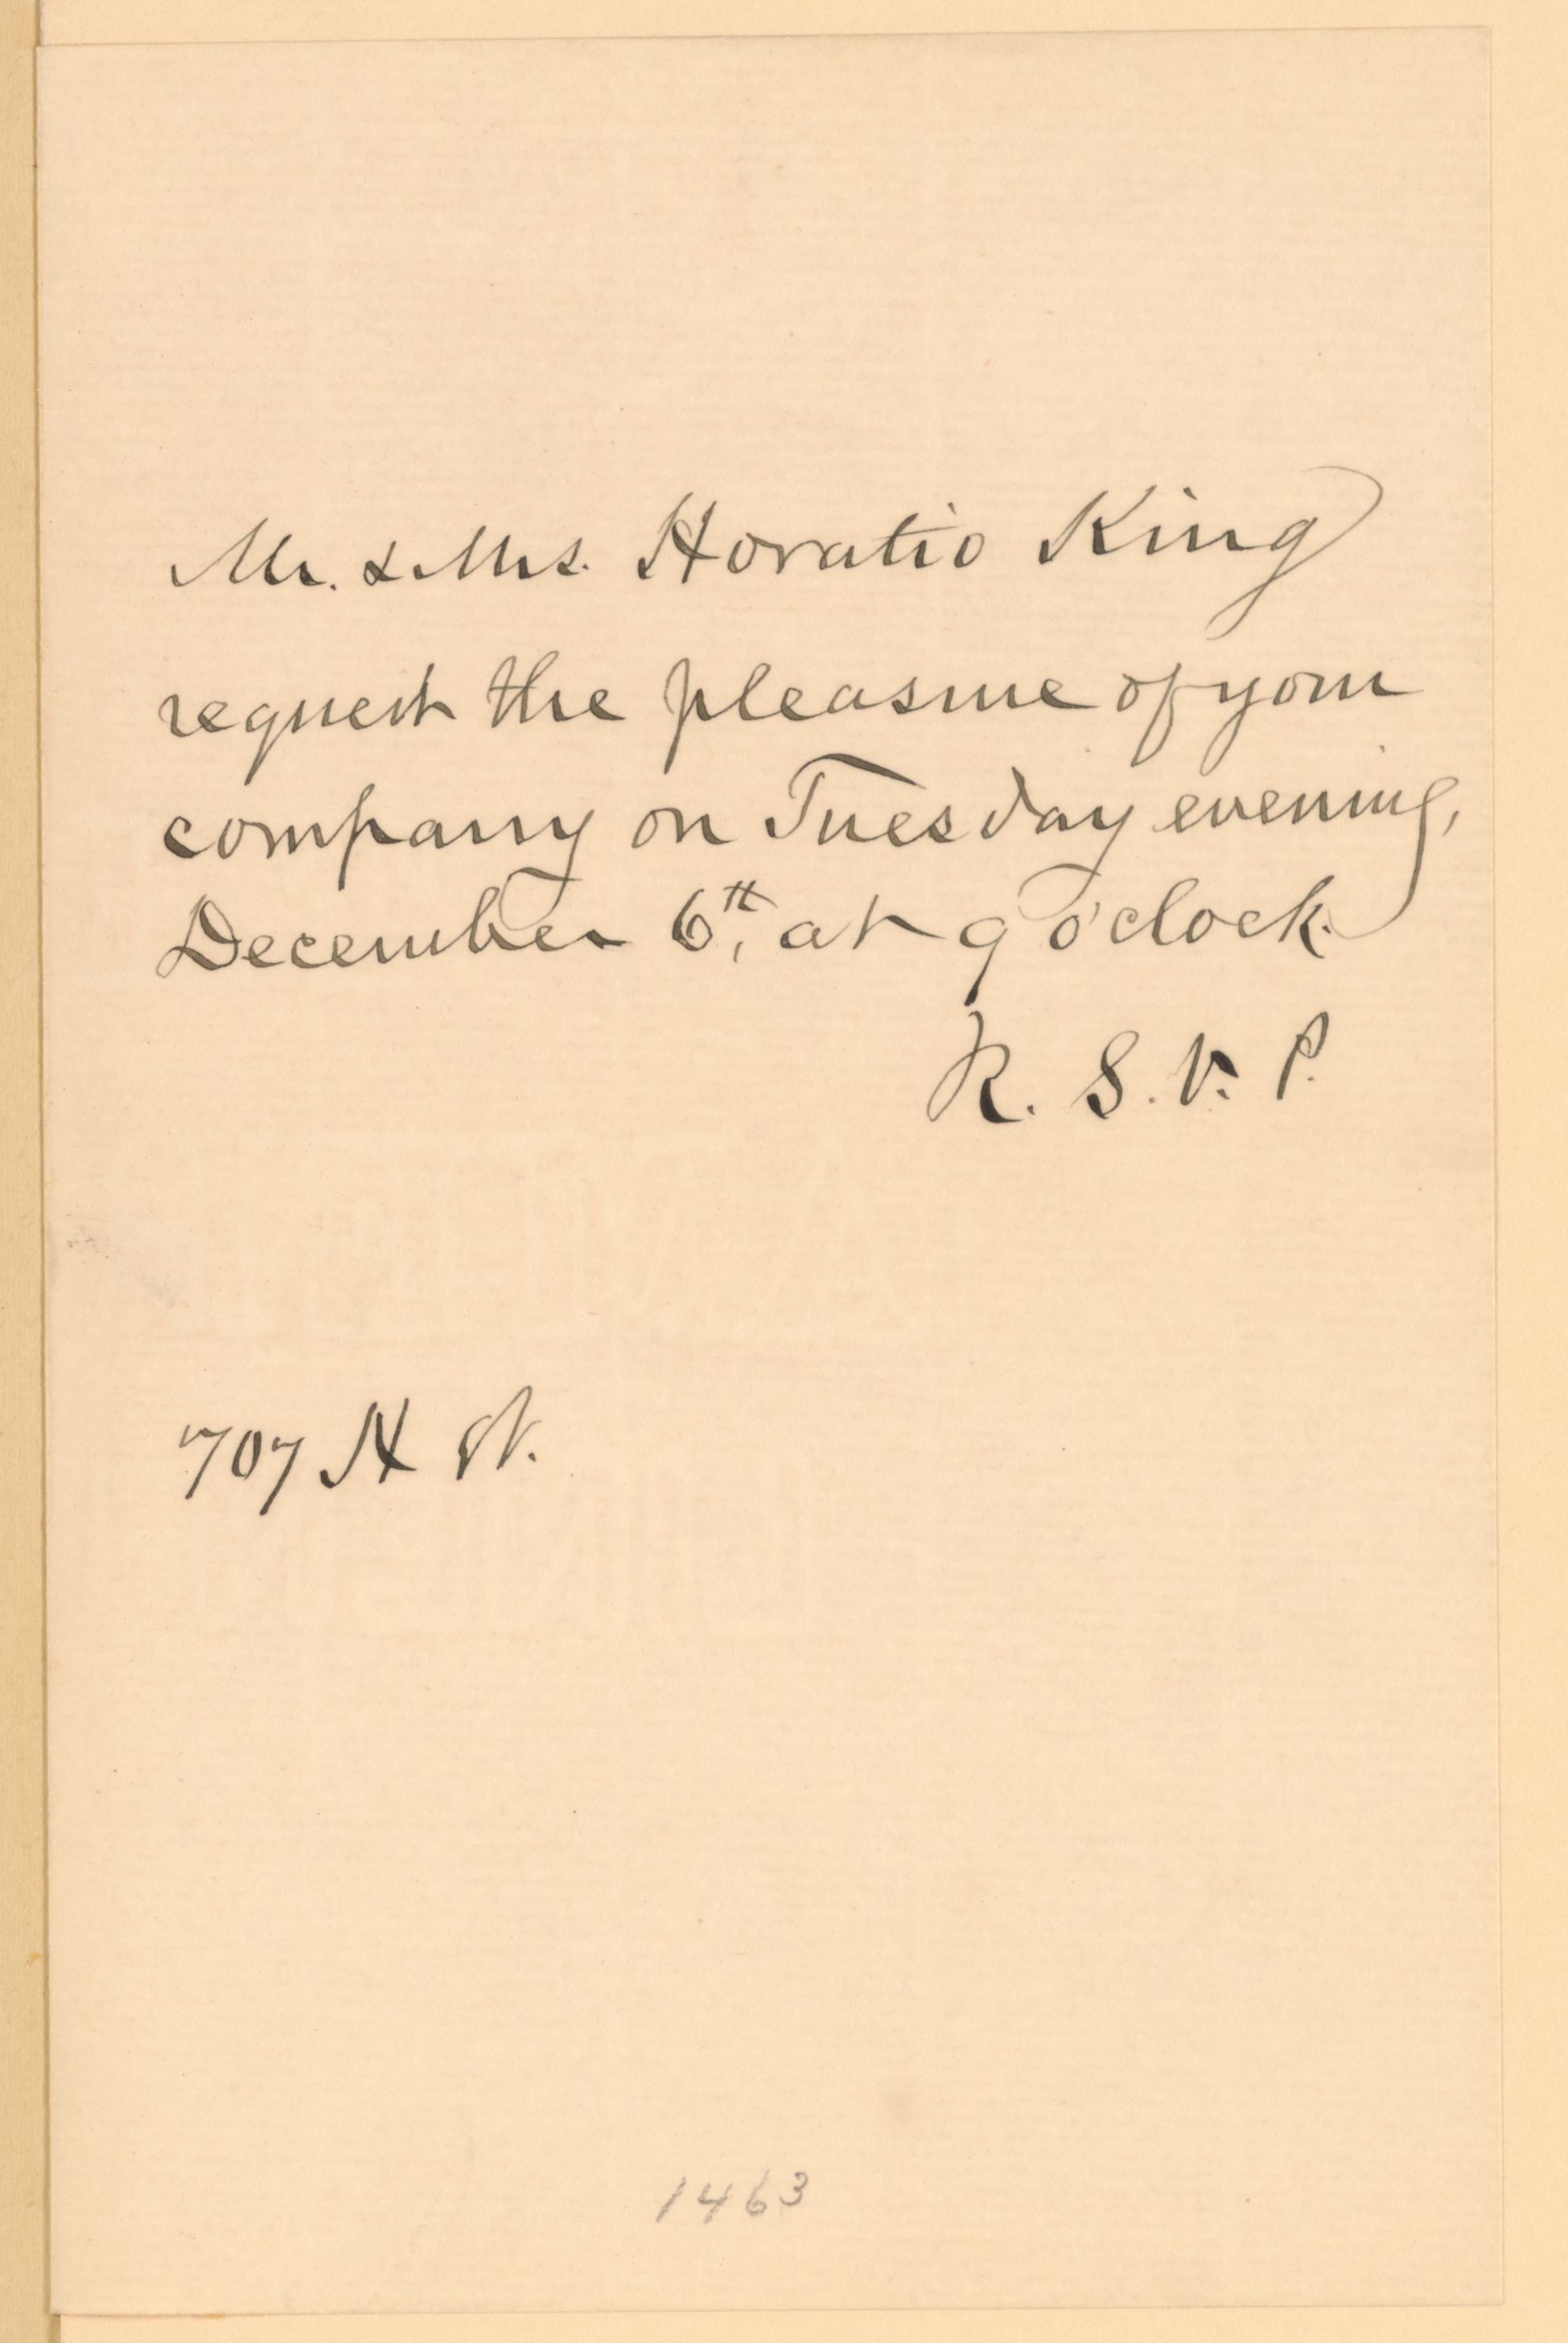 Mr. & Mrs. Horatio King
request the pleasure of your
company on Tuesday evening,
December 6th, at 9 o'clock.
R. S. V. P.
707 H St.
1463